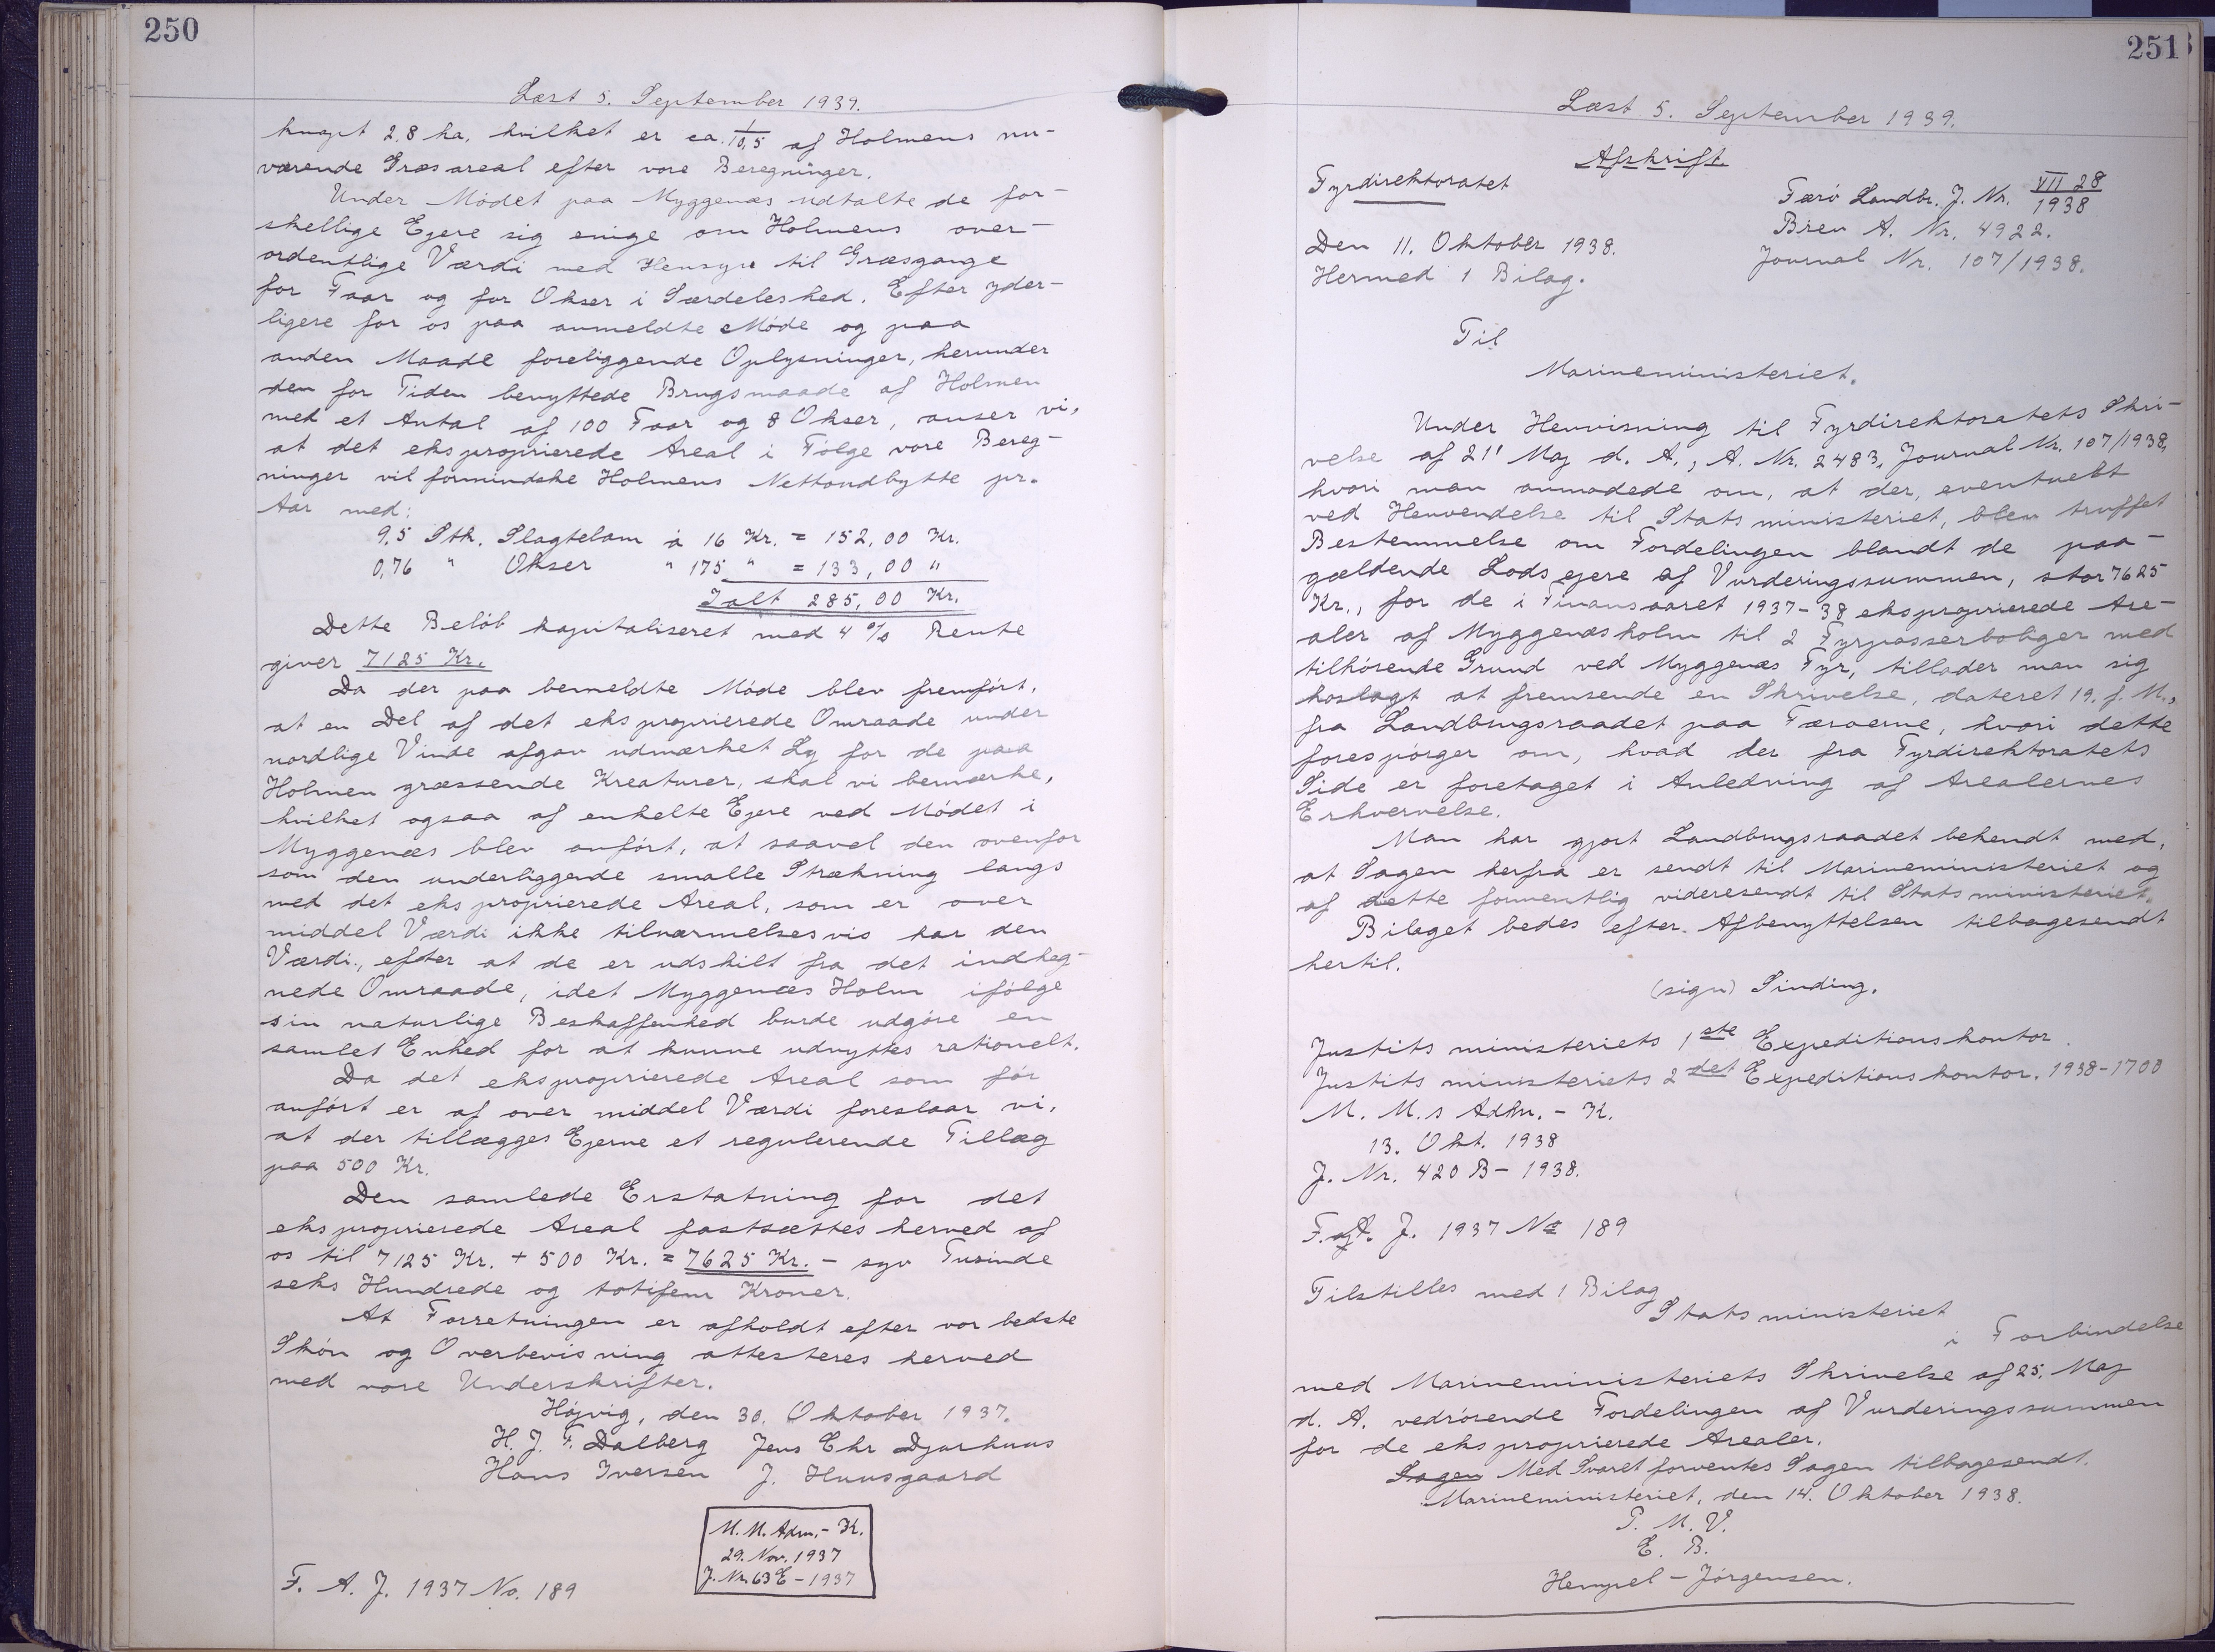 250
Læst 5. September 1939.
knapt 2,8 ha, hvilket er ca. 1/10,5 af Holmens nu-
værende Græsareal efter vore Beregninger.
Under Mødet paa Myggenæs udtalte de for-
skellige Ejere sig enige om Holmens over-
ordentlige Værdi med Hensyn til Græsgange
for Faar og for Okser i Særdeleshed. Efter yder-
ligere for os paa anmeldte Møde og paa
anden Maade foreliggende Oplysninger, herunder
den for Tiden benyttede Brugsmaade af Holmen
med et Antal af 100 Faar og 8 Okser, anser vi,
at det eksproprierede Areal i Følge vore Bereg-
ninger vil formindske Holmens Nettoudbytte pr.
Aar med:
9,5 Stk. Slagtelam à 16 Kr. = 152,00 Kr.
0,76 " Okser " 175 " = 133,00 "
Ialt 285,00 Kr.
Dette Beløb kapitaliseret med 4 % Rente
giver 7125 Kr.
Da der paa bemeldte Møde blev fremført,
at en Del af det eksproprierede Omraade under
nordlige Vinde afgav udmærket Ly for de paa
Holmen græssende Kreaturer, skal vi bemærke,
hvilket ogsaa af enkelte Ejere ved Mødet i
Myggenæs blev anført, at saavel den ovenfor
som den underliggende smalle Strækning langs
med det eksproprierede Areal, som er over
middel Værdi ikke tilnærmelsesvis har den
Værdi, efter at de er udskilt fra det indheg-
nede Omraade, idet Myggenæs Holm ifølge
sin naturlige Beskaffenhed burde udgøre en
samlet Enhed for at kunne udnyttes rationelt.
Da det eksproprierede Areal som før
anført er af over middel Værdi foreslaar vi,
at der tillægges Ejerne et regulerende Tillæg
paa 500 Kr.
Den samlede Erstatning for det
eksproprierede Areal fastsættes herved af
os til 7125 Kr. + 500 Kr. = 7625 Kr. - syv Tusinde
seks Hundrede og totifem Kroner.
At Forretningen er afholdt efter vor bedste
Skøn og Overbevisning attesteres herved
med vore Underskrifter.
Højvig, den 30. Oktober 1937.
H. J. F. Dalberg Jens Chr Djurhuus
Hans Iversen J. Huusgaard
M. M. Adm. - K.
29. Nov. 1937
J. Nr. 63 E - 1937
F. A. J. 1937 No. 189
251
Læst 5. September 1939.
Afskrift
Fyrdirektoratet
Færø Landbr. J. Nr. VII 28/1938
Brev A. Nr. 4922.
Den 11. Oktober 1938.
Journal Nr. 107/1938.
Hermed 1 Bilag.
Til
Marineministeriet.
Under Henvisning til Fyrdirektoratets Skri-
velse af 21' Maj d. A., A. Nr. 2483, Journal Nr. 107/1938,
hvori man anmodede om, at der, eventuelt
ved Henvendelse til Statsministeriet, blev truffet
Bestemmelse om Fordelingen blandt de paa-
gældende Lodsejere af Vurderingssummen, stor 7625
Kr., for de i Finansaaret 1937-38 eksproprierede Are-
aler af Myggenæsholm til 2 Fyrpasserboliger med
tilhørende Grund ved Myggenæs Fyr, tillader man sig
hoslagt at fremsende en Skrivelse, dateret 19. f. M.,
fra Landbrugsraadet paa Færøerne, hvori dette
forespørger om, hvad der fra Fyrdirektoratets
Side er foretaget i Anledning af Arealernes
Erhvervelse.
Man har gjort Landbrugsraadet bekendt med,
at Sagen herfra er sendt til Marineministeriet og
af dette formentlig videresendt til Statsministeriet.
Bilaget bedes efter Afbenyttelsen tilbagesendt
hertil.
(sign) Sinding.
Justitsministeriets 1ste Expeditionskontor.
Justitsministeriets 2det Expeditionskontor. 1938-1700
M. M.s Adm. - K.
13. Okt. 1938
J. Nr. 420 B - 1938.
F. og A. J. 1937 No 189
Tilstilles med 1 Bilag
Statsministeriet
i Forbindelse
med Marineministeriets Skrivelse af 25. Maj
d. A. vedrørende Fordelingen af Vurderingssummen
for de eksproprierede Arealer.
Sagen Med Svaret forventes Sagen tilbagesendt.
Marineministeriet, den 14. Oktober 1938.
P. M. V.
E. B.
Hempel - Jørgensen.